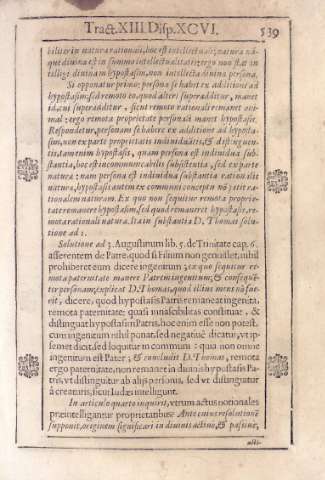 Tract.XIII Disp.XCVI. 539
biliter in natura rationali, hoc est intellectuali; natura nã-
que diuina est in summo intellectualitatis: ergo non stat in
telligi diuinam hypostasim, non intellecta diuina persona.
Si opponatur primò: persona se habet ex additione ad
hypostasim; sed remoto eo, quod alteri superadditur, manet
id, cui superadditur, sicut remoto rationali remanet ani-
mal: ergo remota proprietate personali manet hypostasis.
Respondetur, personam se habere ex additione ad hyposta-
sim, non ex parte proprietatis indiuiduãtis, & distinguen-
tis, tamen im hypostasis, quam persona est indiuidua sub-
stantia, hoc est incommunicabilis subsistentia, sed ex parte
naturæ: nam persona est indiuidua substantia rationalis
naturæ, hypostasis autem ex communi conceptu nõ petit ra-
tionalem naturam. Ex quo non sequitur remota proprie-
tate remanere hypostasim, sed quod remaneret hypostasis, re-
mota rationali natura. Ita in substantia D. Thomas solu-
tione ad 2.
Solutione ad 3. Augustinum lib. 5. de Trinitate cap. 6.
asserentem de Patre, quod si Filium non genuisset, nihil
prohiberet eum dicere ingenitum; ex quo sequitur re-
mota paternitate manere Patrem ingenitum, & consequẽ-
ter personam; explicat D. Thomas, quod illius mens nõ fue-
rit, dicere, quod hypostasis Patris remaneat ingenita,
remota paternitate; quasi innascibilitas constituat, &
distinguat hypostasim Patris, hoc enim esse non potest:
cum ingenitum nihil ponat, sed negatiuè dicatur, vt ip-
semet dicit; sed loquitur in communi: quia non omne
ingenitum est Pater; & concludit D. Thomas, remota
ergo paternitate, non remanet in diuinis hypostasis Pa-
tris, vt distinguitur ab alijs personis, sed vt distinguitur
à creaturis; sicut Iudæi intelligunt.
In articulo quarto inquirit, vtrum actus notionales
præintelligantur proprietatibus? Ante cuius resolutionẽ
supponit, originem significari in diuinis actiuè, & passiuè,